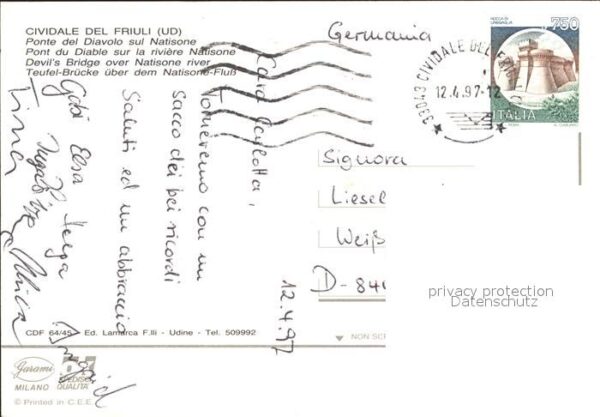 CIVIDALE DEL FRIULI (UD)
Ponte del Diavolo sul Natisone
Pont du Diable sur la rivière Natisone
Devil's Bridge over Natisone river
Teufel-Brücke über dem Natisone-Fluß
Germania
ROCCA DI URBISAGLIA
750
ITALIA
33043 CIVIDALE DEL FRIULI
12.4.97-12
Cara Carlotta,
torneremo con un
sacco dei bei ricordi
Saluti ed un abbraccio
12.4.97
Gabi Elsa
Tina
Ingrid
Signora
Liesel
Weiß
D-840
privacy protection
Datenschutz
CDF 64/45 Ed. Lamarca F.lli - Udine - Tel. 509992
NON SCR
Garami
MILANO
QUALITA'
© Printed in C.E.E.